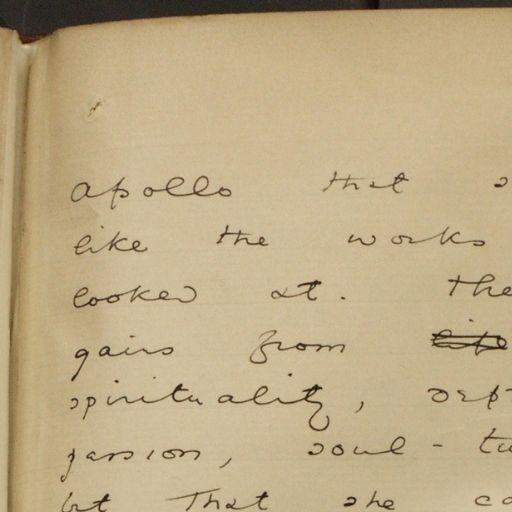 Apollo that
like the works
looked at. The
gains from ~~life~~
spirituality, dep
passion, soul-tu
but that she co